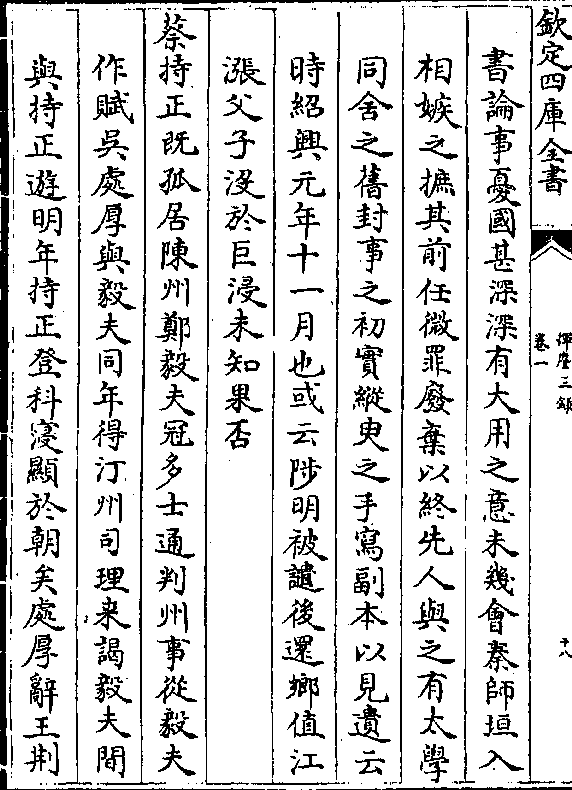 欽定四庫全書
揮麈三録
卷一
十八
書論事憂國甚深深有大用之意未幾會秦師垣入
相嫉之摭其前任微罪廢棄以終先人與之有太學
同舍之舊封事之初實縱臾之手寫副本以見遺云
時紹興元年十一月也或云陟明被譴後還鄉值江
漲父子沒於巨浸未知果否
蔡持正既孤居陳州鄭毅夫冠多士通判州事從毅夫
作賦吳處厚與毅夫同年得汀州司理来謁毅夫間
與持正遊明年持正登科寖顯於朝矣處厚辭王荆